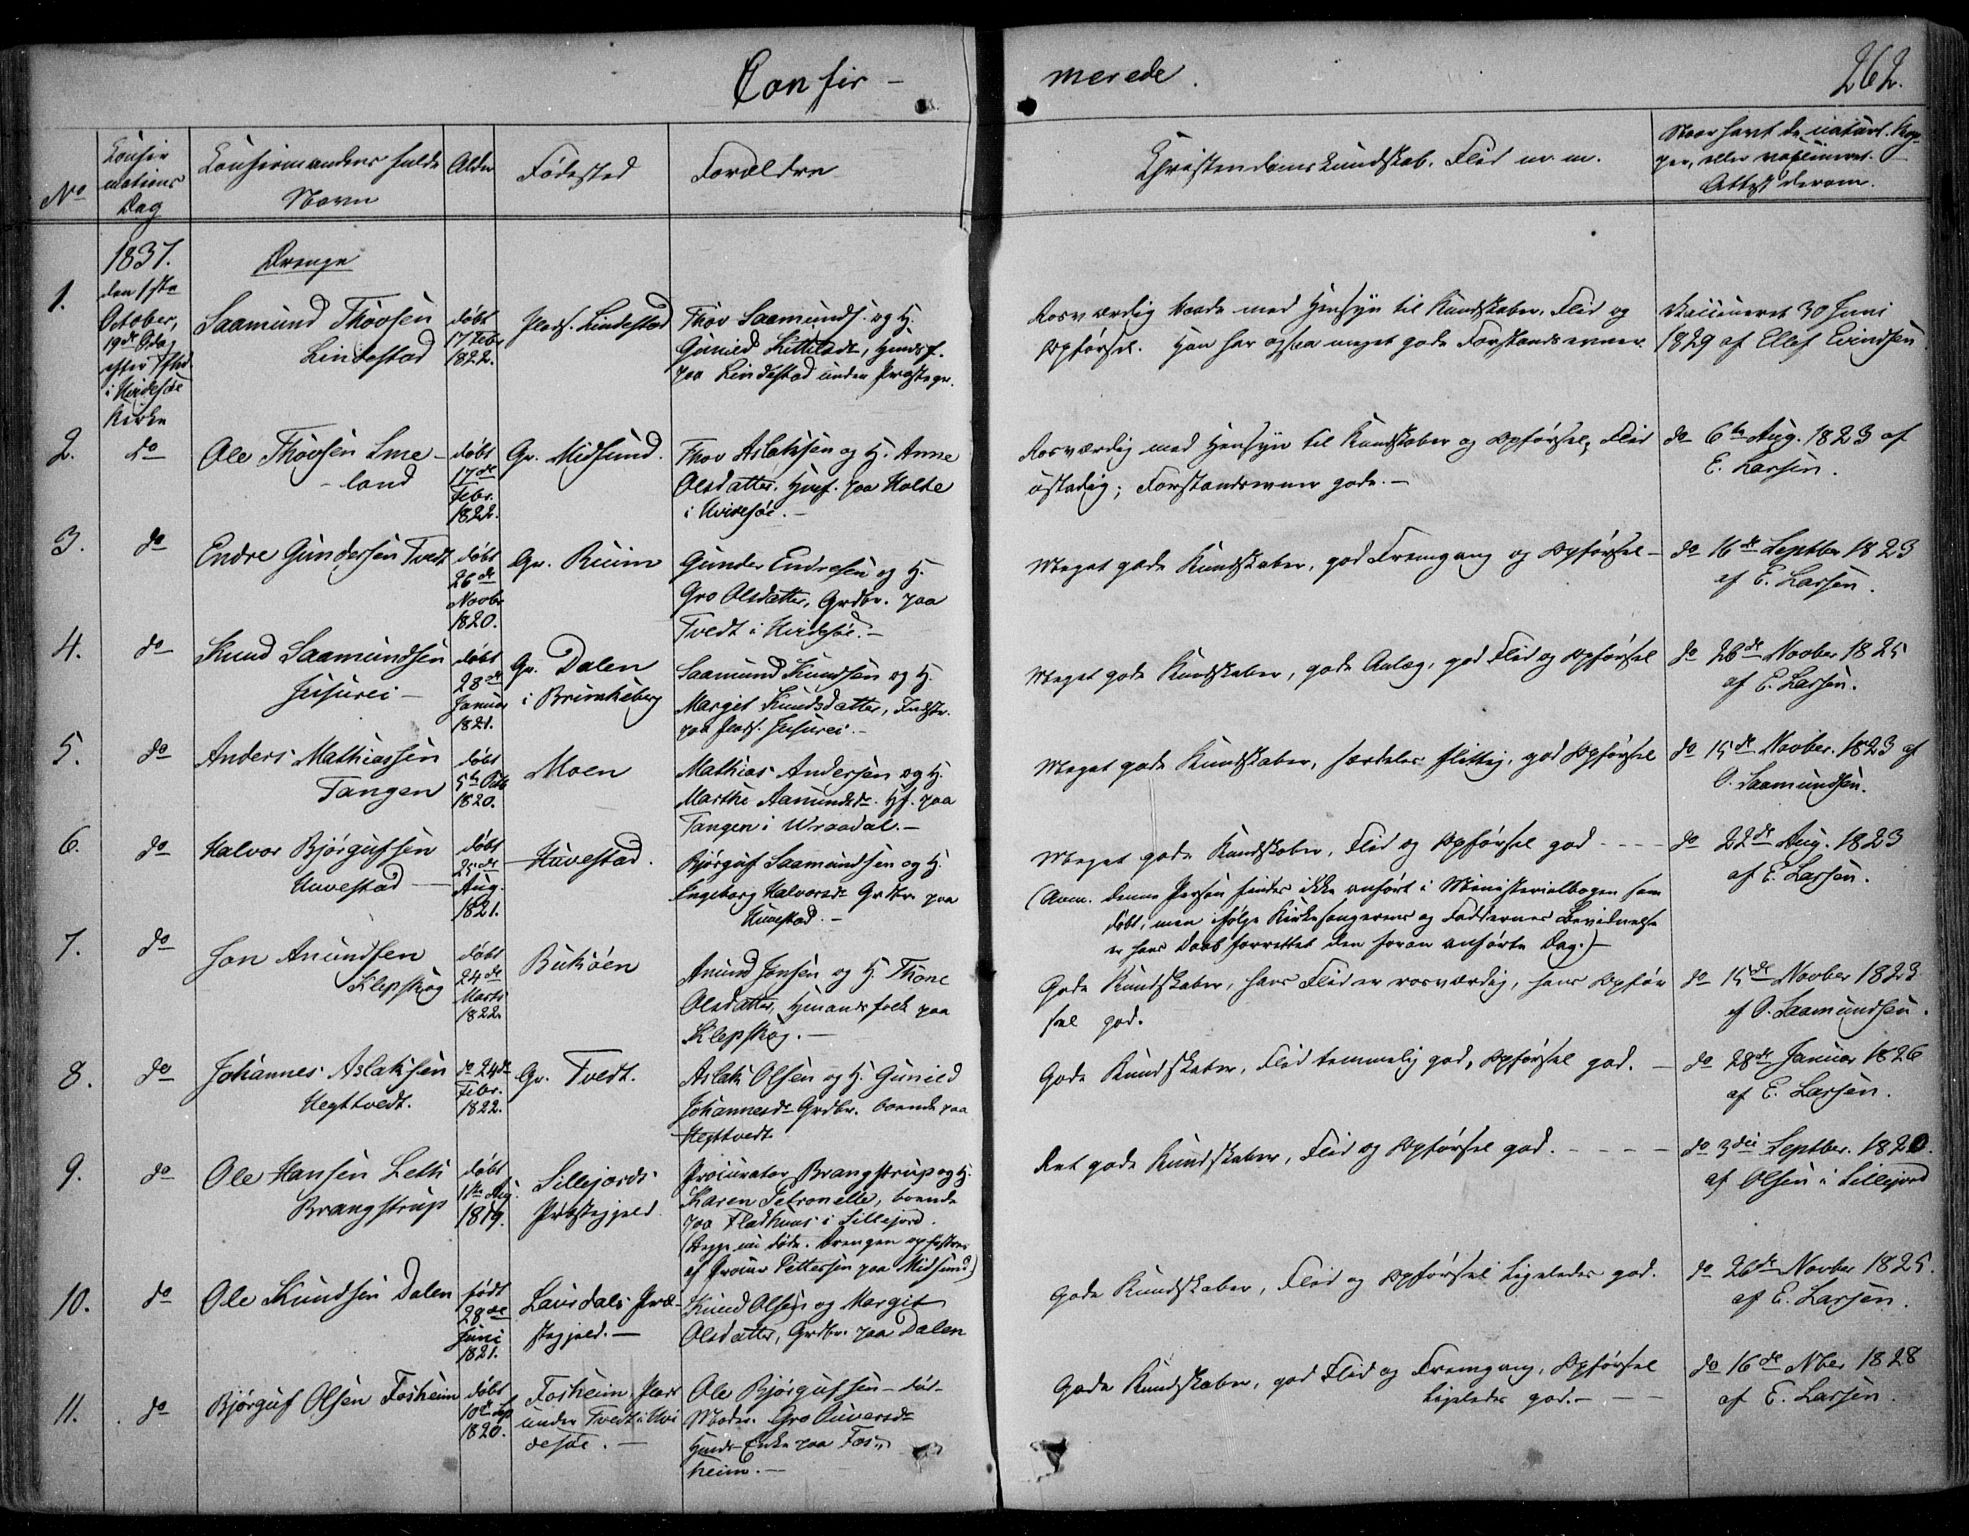 Confir-
merede.
262.
No
Confir
mations
Dag
Confirmandens fulde
Navn
Alder
Fødested
Forældre
Christendomskundskab, Flid m. m.
Naar havt de naturl. Kop-
per, eller vaccineret.
Attest derom.
1837.
Drenge
1.
den 1ste
October,
19de S.
efter Tfld
i Hvidesøe
Kirke
Saamund Thovsen
Lindestad
døbt
17 Febr
1822.
Plads. Lindestad
Thov Saamunds. og H.
Gunild Kittilsdr, Huusf.
paa Lindestad under Præstegr.
Rosværdig baade med Hensyn til Kundskaber, Flid og
Opførsel. Han har ogsaa meget gode Forstandsevner.
Vaccineret 30 Juni
1829 af Ellef Eivindsen
2.
do
Ole Thovsen Sme-
-land
døbt
17de
Febr.
1822.
Gr. Midsund.
Thov Aslaksen og H. Anne
Olsdatter. Huusf. paa Holte
i Hvidesøe.-
Rosværdig med Hensyn til Kundskaber og Opførsel, Flid
ustadig; Forstandsevner gode.-
do 6te Aug. 1823 af
E. Larsen.
3.
do
Endre Gundersen Tvedt
døbt
26de
Novbr
1820.
Gr. Ruim
Gunder Endresen og H.
Gro Olsdatter, Grdbr. paa
Tvedt i Hvidesøe.-
Meget gode Kundskaber, god Fremgang og Opførsel-
do 16de Septbr 1823
af E. Larsen.
4.
do
Knud Saamundsen
Jusurei-
døbt
28de
Januar
1821.
Gr. Dalen
i Brunkeberg
Saamund Knudsen og H.
Margit Knudsdatter, Indstr.
paa Plads. Jusurei.-
Meget gode Kundskaber, gode Anlæg, god Flid og Opførsel
do 26de Novber 1825
af E. Larsen.
5.
do
Anders Mathiassen
Tangen
døbt
5te Octb
1820.
Moen
Mathias Andersen og H.
Marthe Aamundsdr. Hf. paa
Tangen i Wraadal.-
Meget gode Kundskaber, særdeles flittig, god Opførsel
do 15de Novber. 1823 af
O. Saamundsen.
6.
do
Halvor Bjørgufsen
Huvestad-
døbt
25de
Aug.
1821.
Huvestad.
Bjørguf Saamundsen og H.
Engeborg Halvorsdr Grdbr. paa
Huvestad.-
Meget gode Kundskaber, Flid og Opførsel god----
(Anm. denne Person findes ikke anført i Ministerialbogen som
døbt, men ifølge Kirkesangerens og Faddernes Bevidnelse
er hans Daab forrettet den foran anførte Dag.)-
do 22de Aug. 1823
af E. Larsen.
7.
do
Jon Anundsen
Klepskog
døbt
24de
Marts
1822.
Bukøen
Anund Jonsen og H. Thone
Olsdatter, Huusmandsfolk paa
Klepskog.-
Gode Kundskaber, hans Flid er rosværdig, hans Opfør
sel god.
do 15de Novber 1823
af O. Saamundsen.
8.
do
Johannes Aslaksen
Hegttvedt.
do 24de
Febr.
1822.
Gr. Tvedt.
Aslak Olsen og H. Gunild
Johannesdr Grdbr. boende paa
Hegttvedt
Gode Kundskaber, Flid temmelig god, Opførsel god.-
do 28de Januar 1826
af E. Larsen.
9.
do
Ole Hansen Leth
Brangstrup
døbt
1ste Aug.
1819.
Sillejords
Præstegjeld.
Procurator Brangstrup og H.
Karen Petronelle, boende
paa Fladhuus i Sillejord.
(Begge nu døde. Drengen opfostres
af Procur. Pettersen paa Midsund)
Ret gode Kundskaber, Flid og Opførsel god.----
do 3die Septber. 1820.
af Olsen i Sillejord
10.
do
Ole Knudsen Dalen
født
28de
Juni
1821.
Laurdals Præ-
stegjeld.-
Knud Olsen og Margit
Olsdatter, Grdbr. paa Dalen
Gode Kundskaber, Flid og Opførsel ligeledes god.
do 26de Novber 1825.
af E. Larsen.
11.
do
Bjørguf Olsen Fosheim
døbt
10de Sep
1820.
Fosheim, Plads
under Tvedt i Hvi
desøe.-
Ole Bjørgufsen- død-
Moder. Gro Anversdr
Huusm.-Enke paa Fos-
heim.-
Gode Kundskaber, god Flid og Fremgang, Opførsel
ligeledes god.---
do 16de Nber 1828
af E. Larsen.